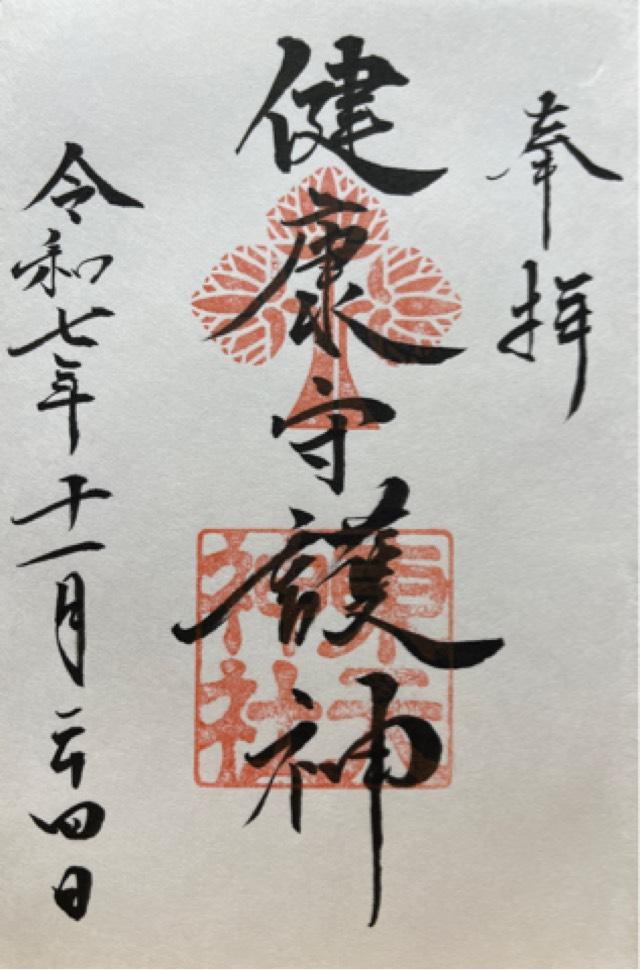 奉拝
健康守護神
神社
令和七年十一月二十四日